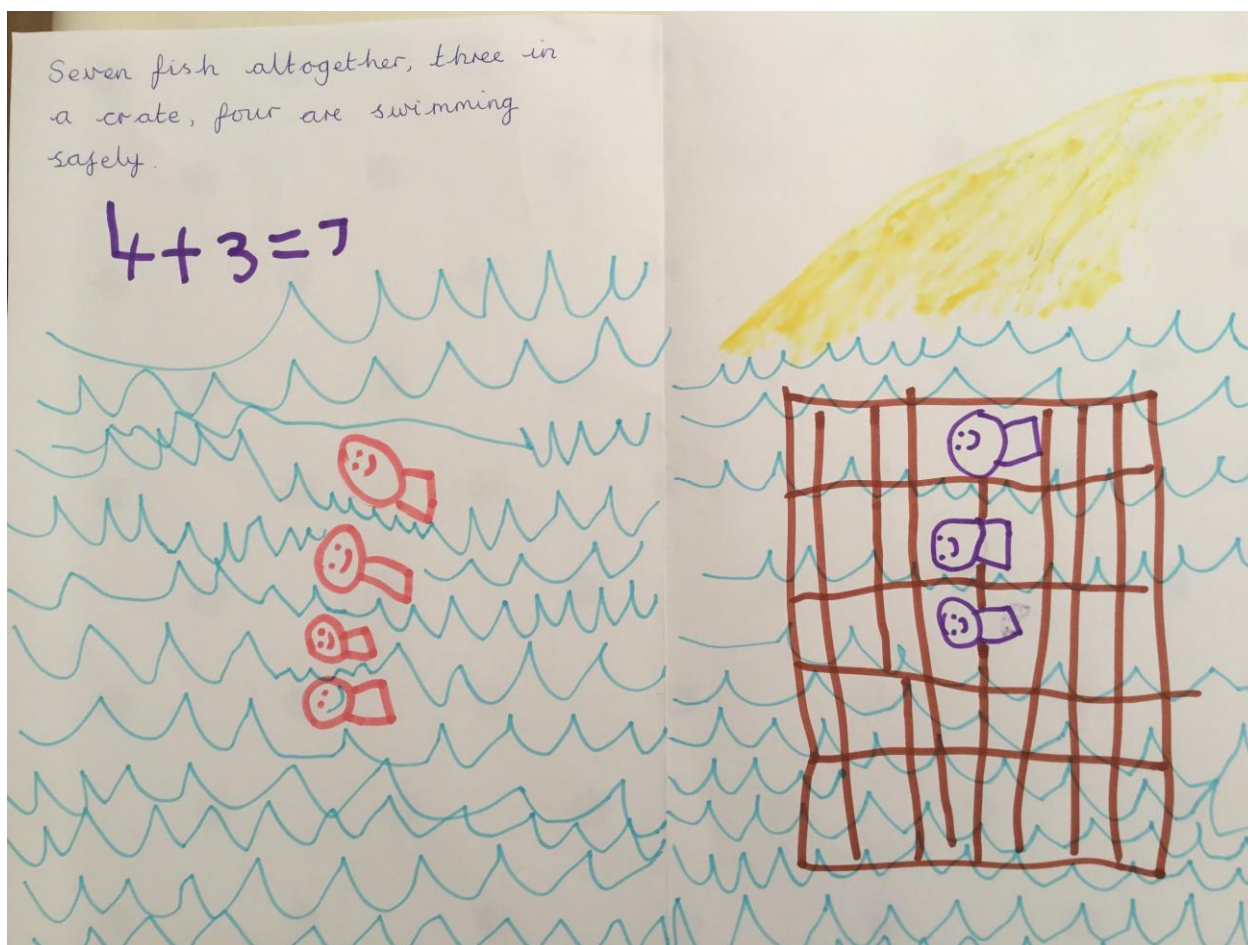 Seven fish altogether, three in
a crate, four are swimming
safely.
4+3=7